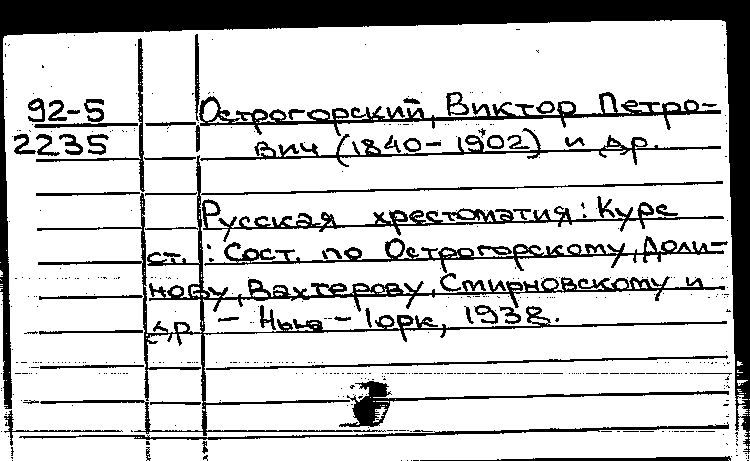 92-5 Острогорский, Виктор Петро-
2235 вич (1840-1902) и др.
Русская хрестоматия: Курс
ст. : Сост. по Острогорскому, Доли-
нову, Вахтерову, Смирновскому и
др. - Нью-Йорк, 1938.